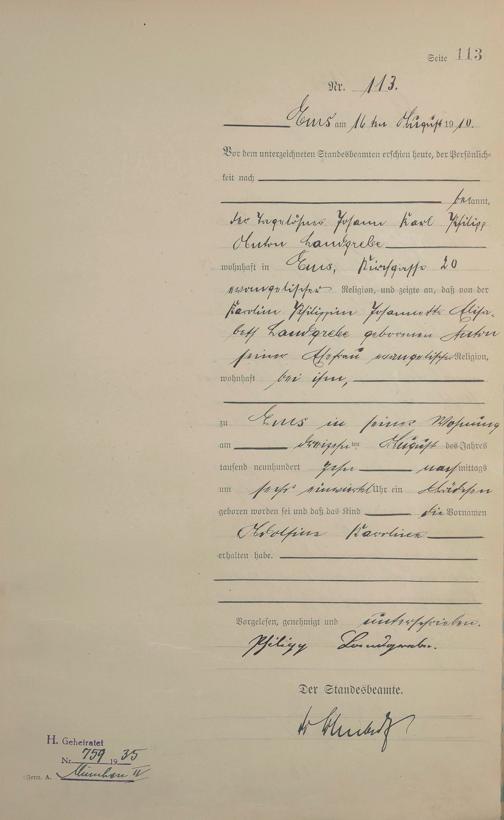 Seite 113
Nr. 113.
Ems am 16 ten August 1910.
Vor dem unterzeichneten Standesbeamten erschien heute, der Persönlich-
keit nach
bekannt,
der Tagelöhner Johann Karl Philipp
Anton Landgrebe
wohnhaft in Ems, Kirchgasse 20
evangelischer Religion, und zeigte an, daß von der
Karolin Philippin Johannette Elisa-
beth Landgrebe geborenen Anton
seiner Ehefrau evangelischer Religion,
wohnhaft bei ihm,
zu Ems in seiner Wohnung
am dreizehnten August des Jahres
tausend neunhundert zehn nachmittags
um sechs einviertel Uhr ein Mädchen
geboren worden sei und daß das Kind die Vornamen
Adolfine Karoline
erhalten habe.
Vorgelesen, genehmigt und unterschrieben.
Philipp Landgrebe.
Der Standesbeamte.
H. Geheiratet
Nr. 759 1935
München IV
Germ. A.